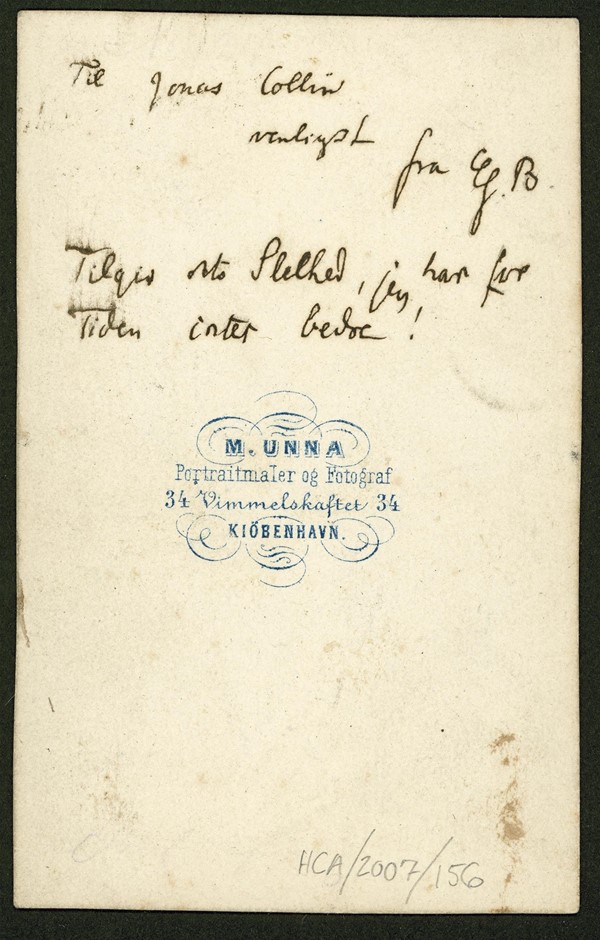 Til Jonas Collin
venligst
fra Eg. B.
Tilgiv Slethed, jeg har for
Tiden intet bedre!
M. UNNA
Portraitmaler og Fotograf
34 Vimmelskaftet 34
KIÖBENHAVN.
HCA/2007/156